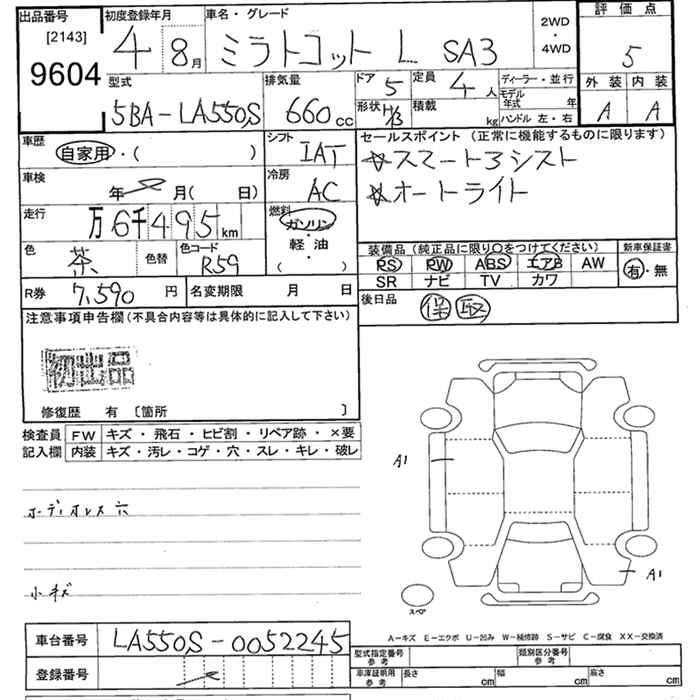 出品番号 [2143] 9604
初度登録年月 4 8月
車名・グレード ミラトコット L SA3
2WD・4WD
評価点 5
外装 A 内装 A
型式 5BA-LA550S
排気量 660cc
ドア 5 形状 H/B
定員 4人 積載 kg
ディーラー・並行
モデル年式 年
ハンドル 左・右
車歴 自家用・( )
シフト IAT
セールスポイント (正常に機能するものに限ります)
☆スマートアシスト
☆オートライト
車検 年 月( 日)
冷房 AC
走行 万6千495km
燃料 ガソリン・軽油 ( )
色 茶 色替 色コード R59
装備品 (純正品に限り○をつけてください) 新車保証書
PS PW ABS エアB AW 有・無
SR ナビ TV カワ
R券 7,590円 名変期限 月 日
後日品 保 取
注意事項申告欄 (不具合内容等は具体的に記入して下さい)
初出品
修復歴 有 〔箇所 〕
検査員 FW キズ・飛石・ヒビ割・リペア跡・×要
記入欄 内装 キズ・汚レ・コゲ・穴・スレ・キレ・破レ
A1
小キズ
A1
スペア
A-キズ E-エクボ U-凹み W-補修跡 S-サビ C-腐食 XX-交換済
車台番号 LA550S-0052245
登録番号
型式指定番号 参考 類別区分番号 参考
車庫証明用 参考 長さ cm 幅 cm 高さ cm